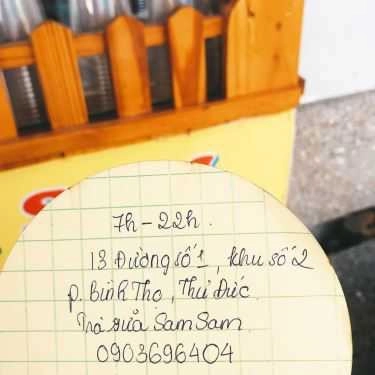 7h - 22h.
13 Đường số 1, khu số 2
p. Bình Thọ, Thủ Đức.
Trà sữa Sam Sam
0903696404